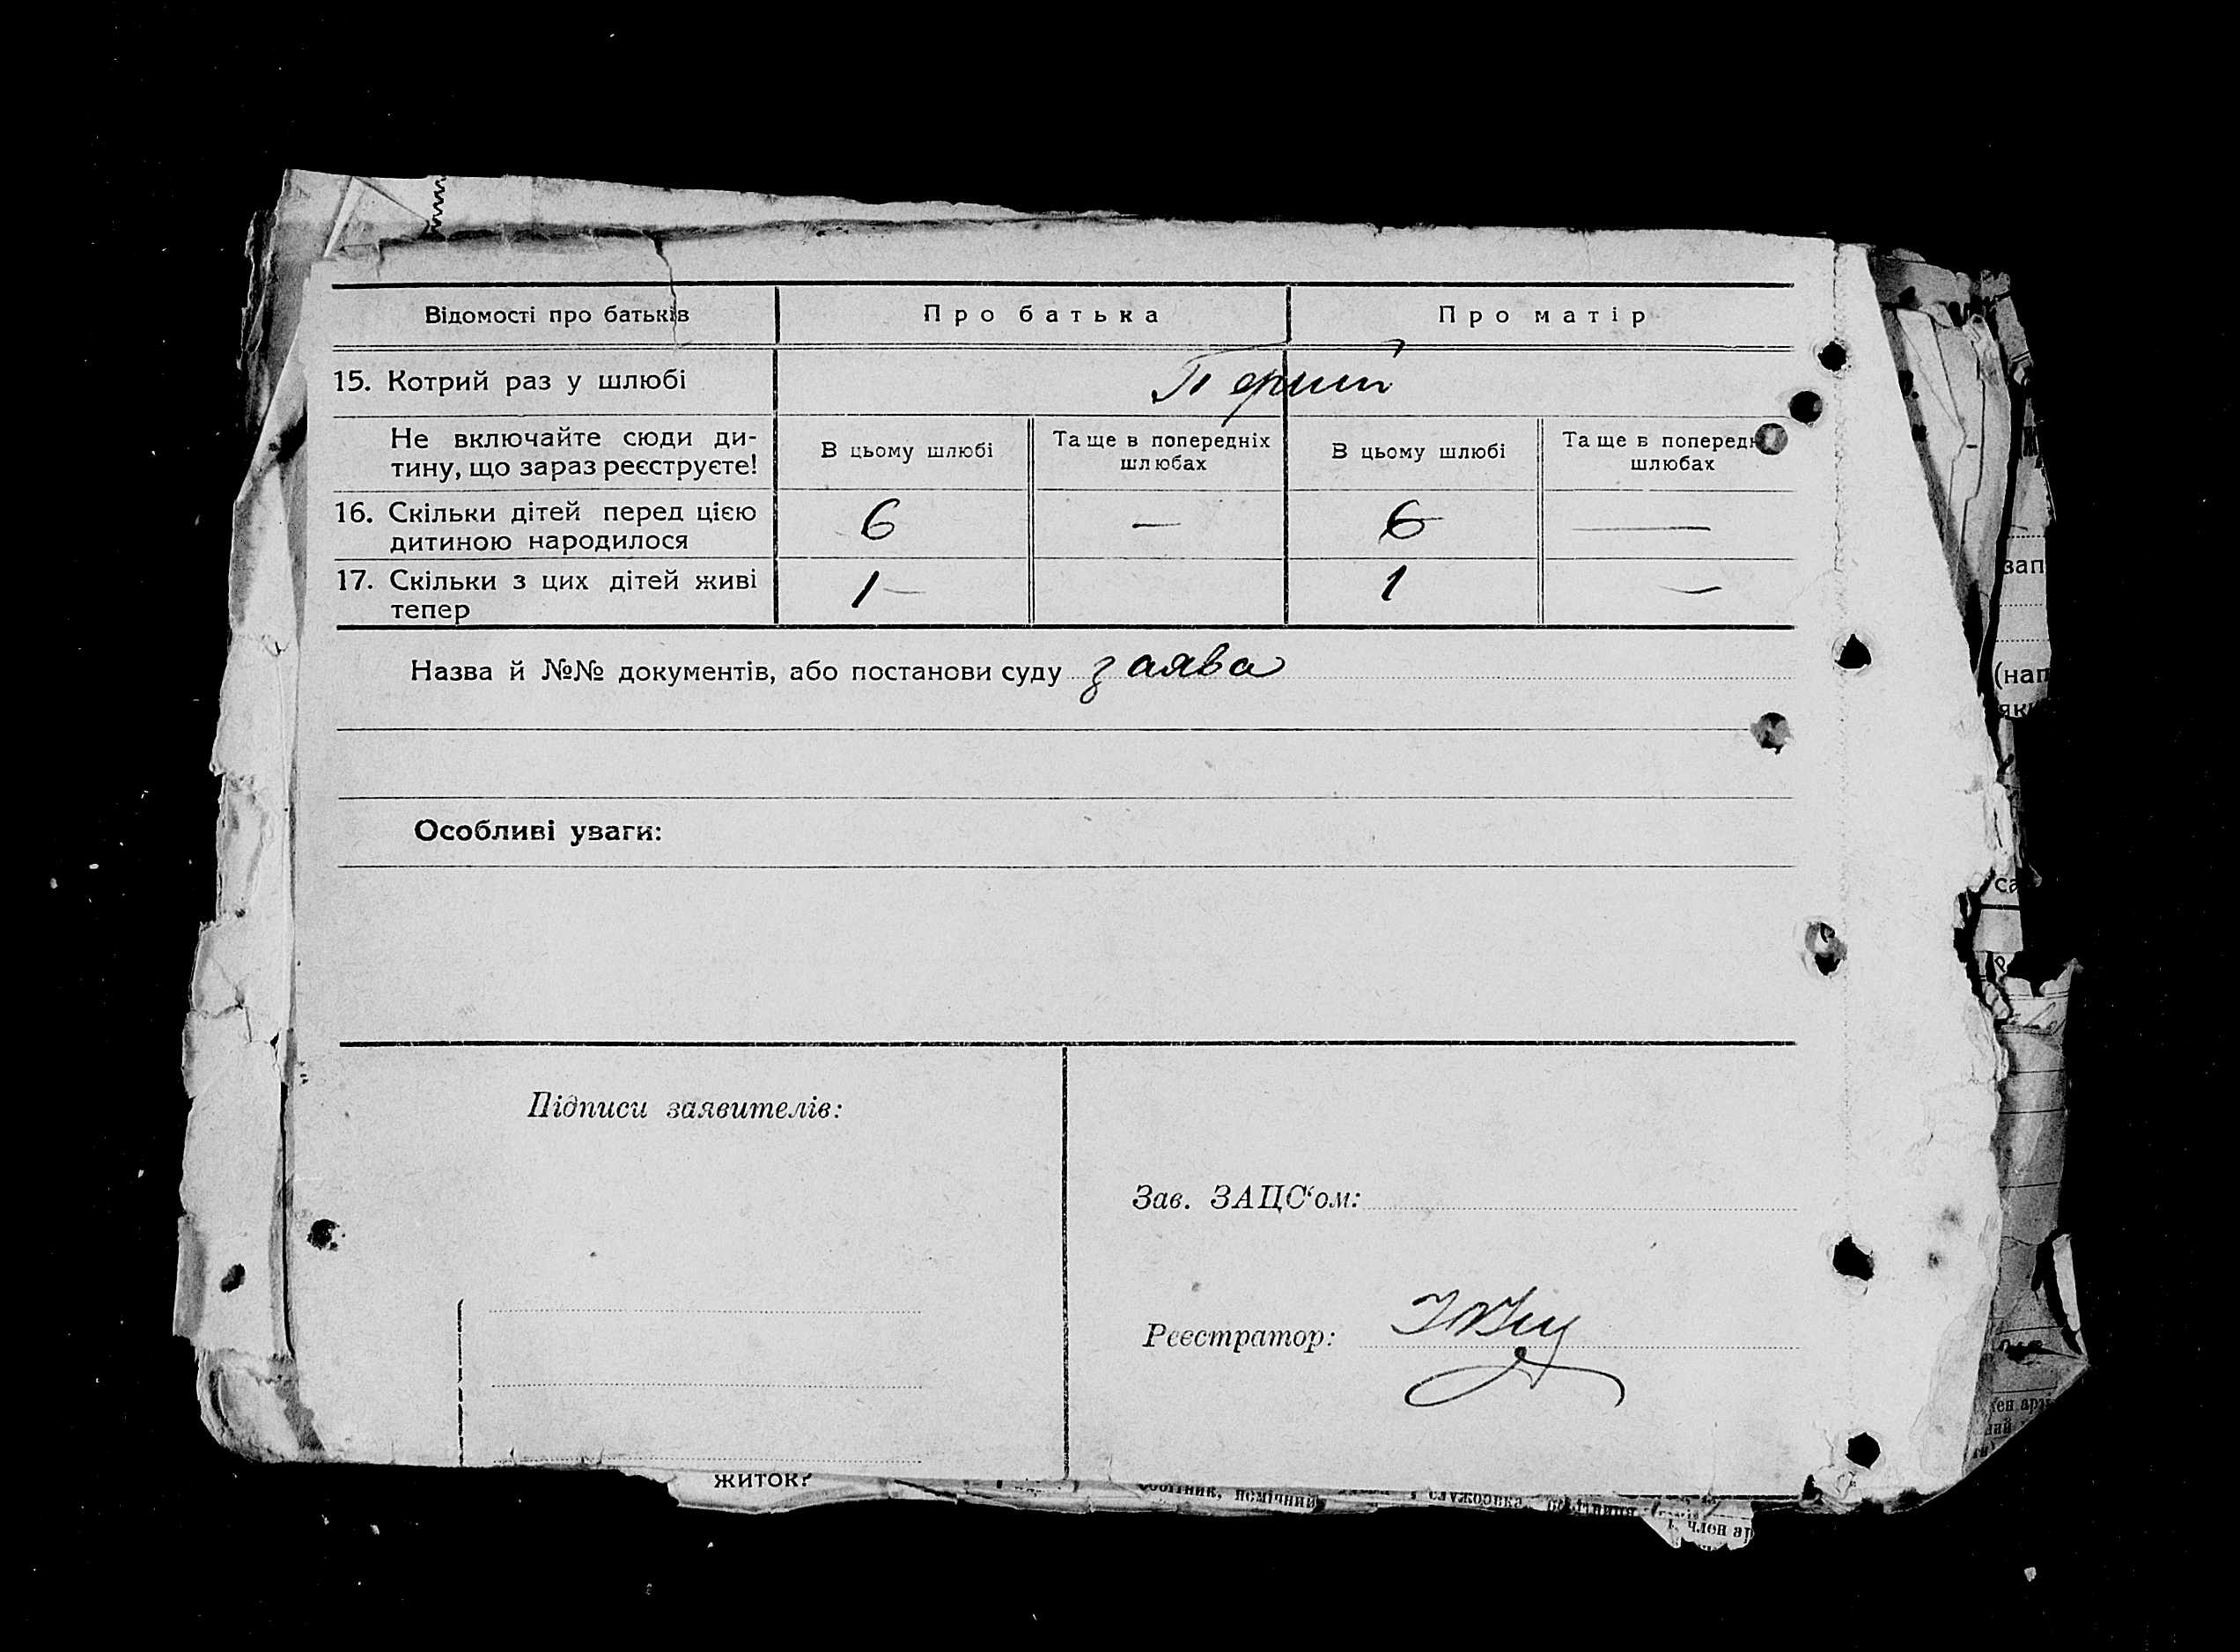 Відомості про батьків Про батька Про матір
15. Котрий раз у шлюбі Перший
Не включайте сюди ди-
тину, що зараз реєструєте!
В цьому шлюбі
Та ще в попередніх
шлюбах
В цьому шлюбі
Та ще в попередн
шлюбах
16. Скільки дітей перед цією
дитиною народилося
6 — 6 —
17. Скільки з цих дітей живі
тепер
1 — 1 —
Назва й №№ документів, або постанови суду заява
Особливі уваги:
Підписи заявителів:
Зав. ЗАЦС‘ом:
Реєстратор:
житок?
помічний
зап
(нап